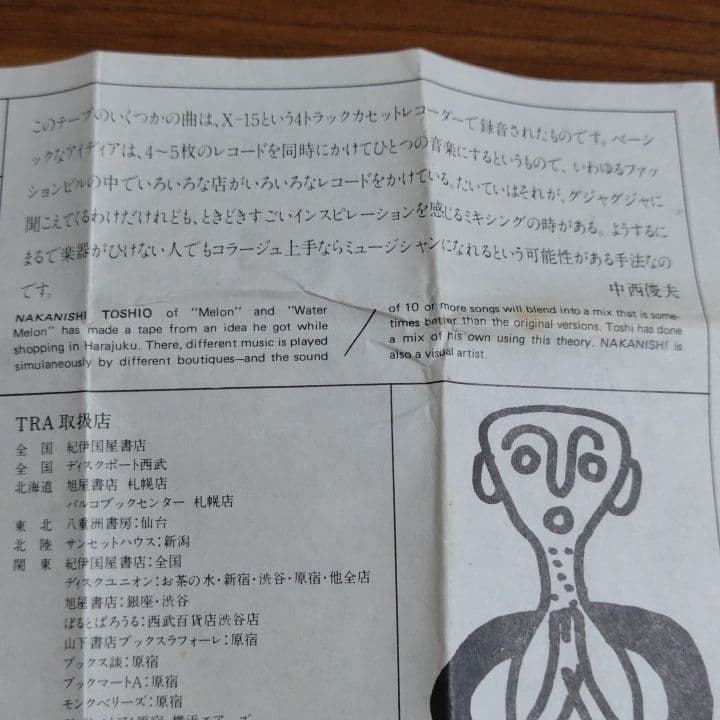 このテープのいくつかの曲は、X-15という4トラックカセットレコーダーで録音されたものです。ベーシ
ックなアイディアは、4〜5枚のレコードを同時にかけてひとつの音楽にするというもので、いわゆるファッ
ションビルの中でいろいろな店がいろいろなレコードをかけている。たいていはそれが、グジャグジャに
聞こえてくるわけだけれども、ときどきすごいインスピレーションを感じるミキシングの時がある。ようするに
まるで楽器がひけない人でもコラージュ上手ならミュージシャンになれるという可能性がある手法なの
です。
中西俊夫
NAKANISHI TOSHIO of "Melon" and "Water
Melon" has made a tape from an idea he got while
shopping in Harajuku. There, different music is played
simulaneously by different boutiques—and the sound
of 10 or more songs will blend into a mix that is some-
times better than the original versions. Toshi has done
a mix of his own using this theory. NAKANISHI is
also a visual artist.
TRA取扱店
全 国 紀伊国屋書店
全 国 ディスクポート西武
北海道 旭屋書店 札幌店
パルコブックセンター 札幌店
東 北 八重洲書房:仙台
北 陸 サンセットハウス:新潟
関 東 紀伊国屋書店:全国
ディスクユニオン:お茶の水・新宿・渋谷・原宿・他全店
旭屋書店:銀座・渋谷
ぽると ぱろうる:西武百貨店渋谷店
山下書店ブックスラフォーレ:原宿
ブックス談:原宿
ブックマートA:原宿
モンクベリーズ:原宿